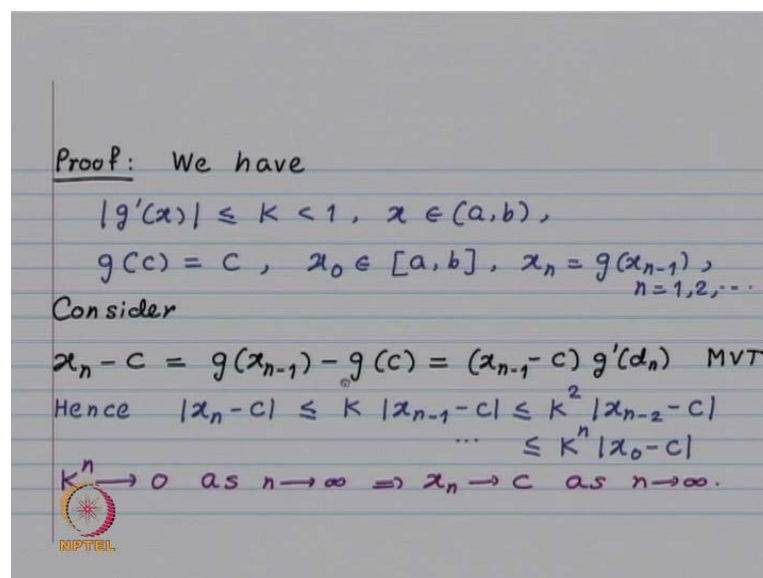 Proof: We have
|g'(x)| ≤ K < 1, x ∈ (a,b),
g(c) = c, x₀ ∈ [a,b], xₙ = g(xₙ₋₁),
n=1,2,...
Consider
xₙ - c = g(xₙ₋₁) - g(c) = (xₙ₋₁ - c) g'(dₙ) MVT
Hence |xₙ - c| ≤ K |xₙ₋₁ - c| ≤ K² |xₙ₋₂ - c|
... ≤ Kⁿ |x₀ - c|
Kⁿ → 0 as n → ∞ ⇒ xₙ → c as n → ∞.
NPTEL